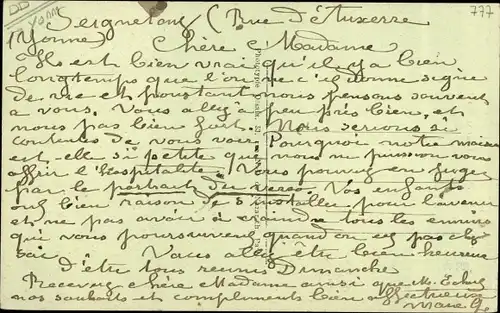 777
DD
Yonne
Seignelay (Rue d'Auxerre
(Yonne) Chère Madame
Il est bien vrai qu'il y a bien
longtemps que l'on ne s'il donne signe
de vie et pourtant nous pensons souvent
a vous. Vous allez à peu près bien, et
nous pas bien fort. Nous serions si
contents de vous voir. Pourquoi notre maison
est elle si petite que nous ne puissions vous
offrir l'hospitalité. Vous pouvez en juger
par le portrait du verso. Vos enfants
ont bien raison de s'installer pour l'avenir
et ne pas avoir à craindre tous les ennuis
qui vous poursuivent quand on est pas chez
soi. Vous allez être bien heureux
d'être tous reunis Dimanche
Recevez chère Madame ainsi que M.
nos souhaits et compliments bien affectueux
Marie